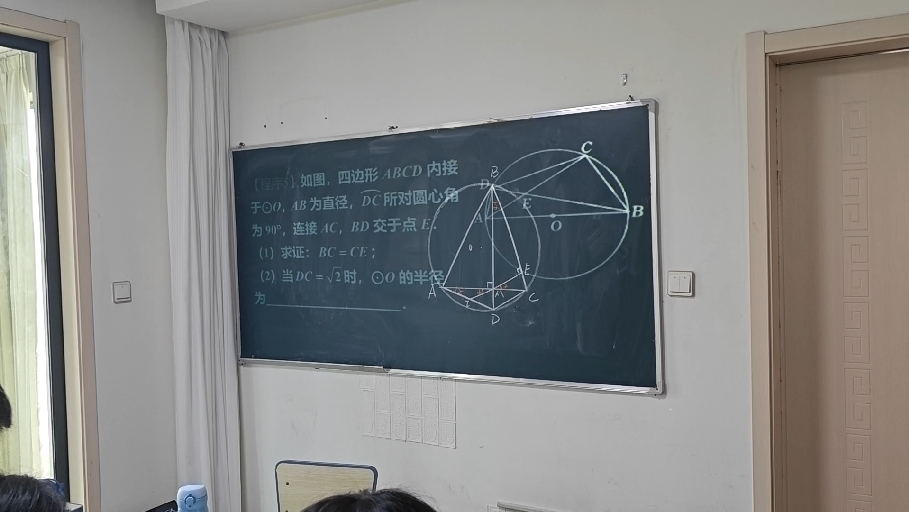 如图，四边形 ABCD 内接
于⊙O，AB 为直径，DC 所对圆心角
为 90°，连接 AC，BD 交于点 E.
（1）求证：BC = CE；
（2）当 DC = √2 时，⊙O 的半径
为____________.
C
B
D
E
A
B
O
E
A
C
D